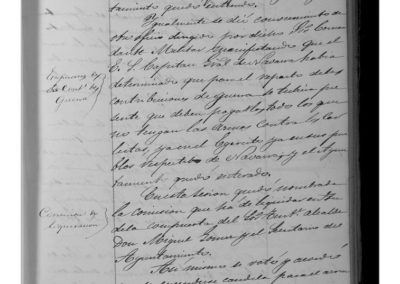 tamiento quedó enterado.
Igualmente se dió conocimiento de
otro oficio dirigido por dicho Sr. Coman
dante Militar manifestando que el
E. S. Capitan Gral de Navarra habia
determinado que para el reparto de las
contribuciones de guerra se tubiera pre
sente que deben pagar todos los que
no tengan las armas contra los Car
listas, ya en el Ejército ya en sus pue
blos respectivos de Navarra, y el Ayun
tamiento quedó enterado.
En esta sesion quedó nombrada
la comision que ha de liquidar
compuesta del Sr. Alcalde
Don Miguel y el Secretario del
Ayuntamiento.
Asi mismo se votó y acordó
Guerra
Comision de
liquidacion